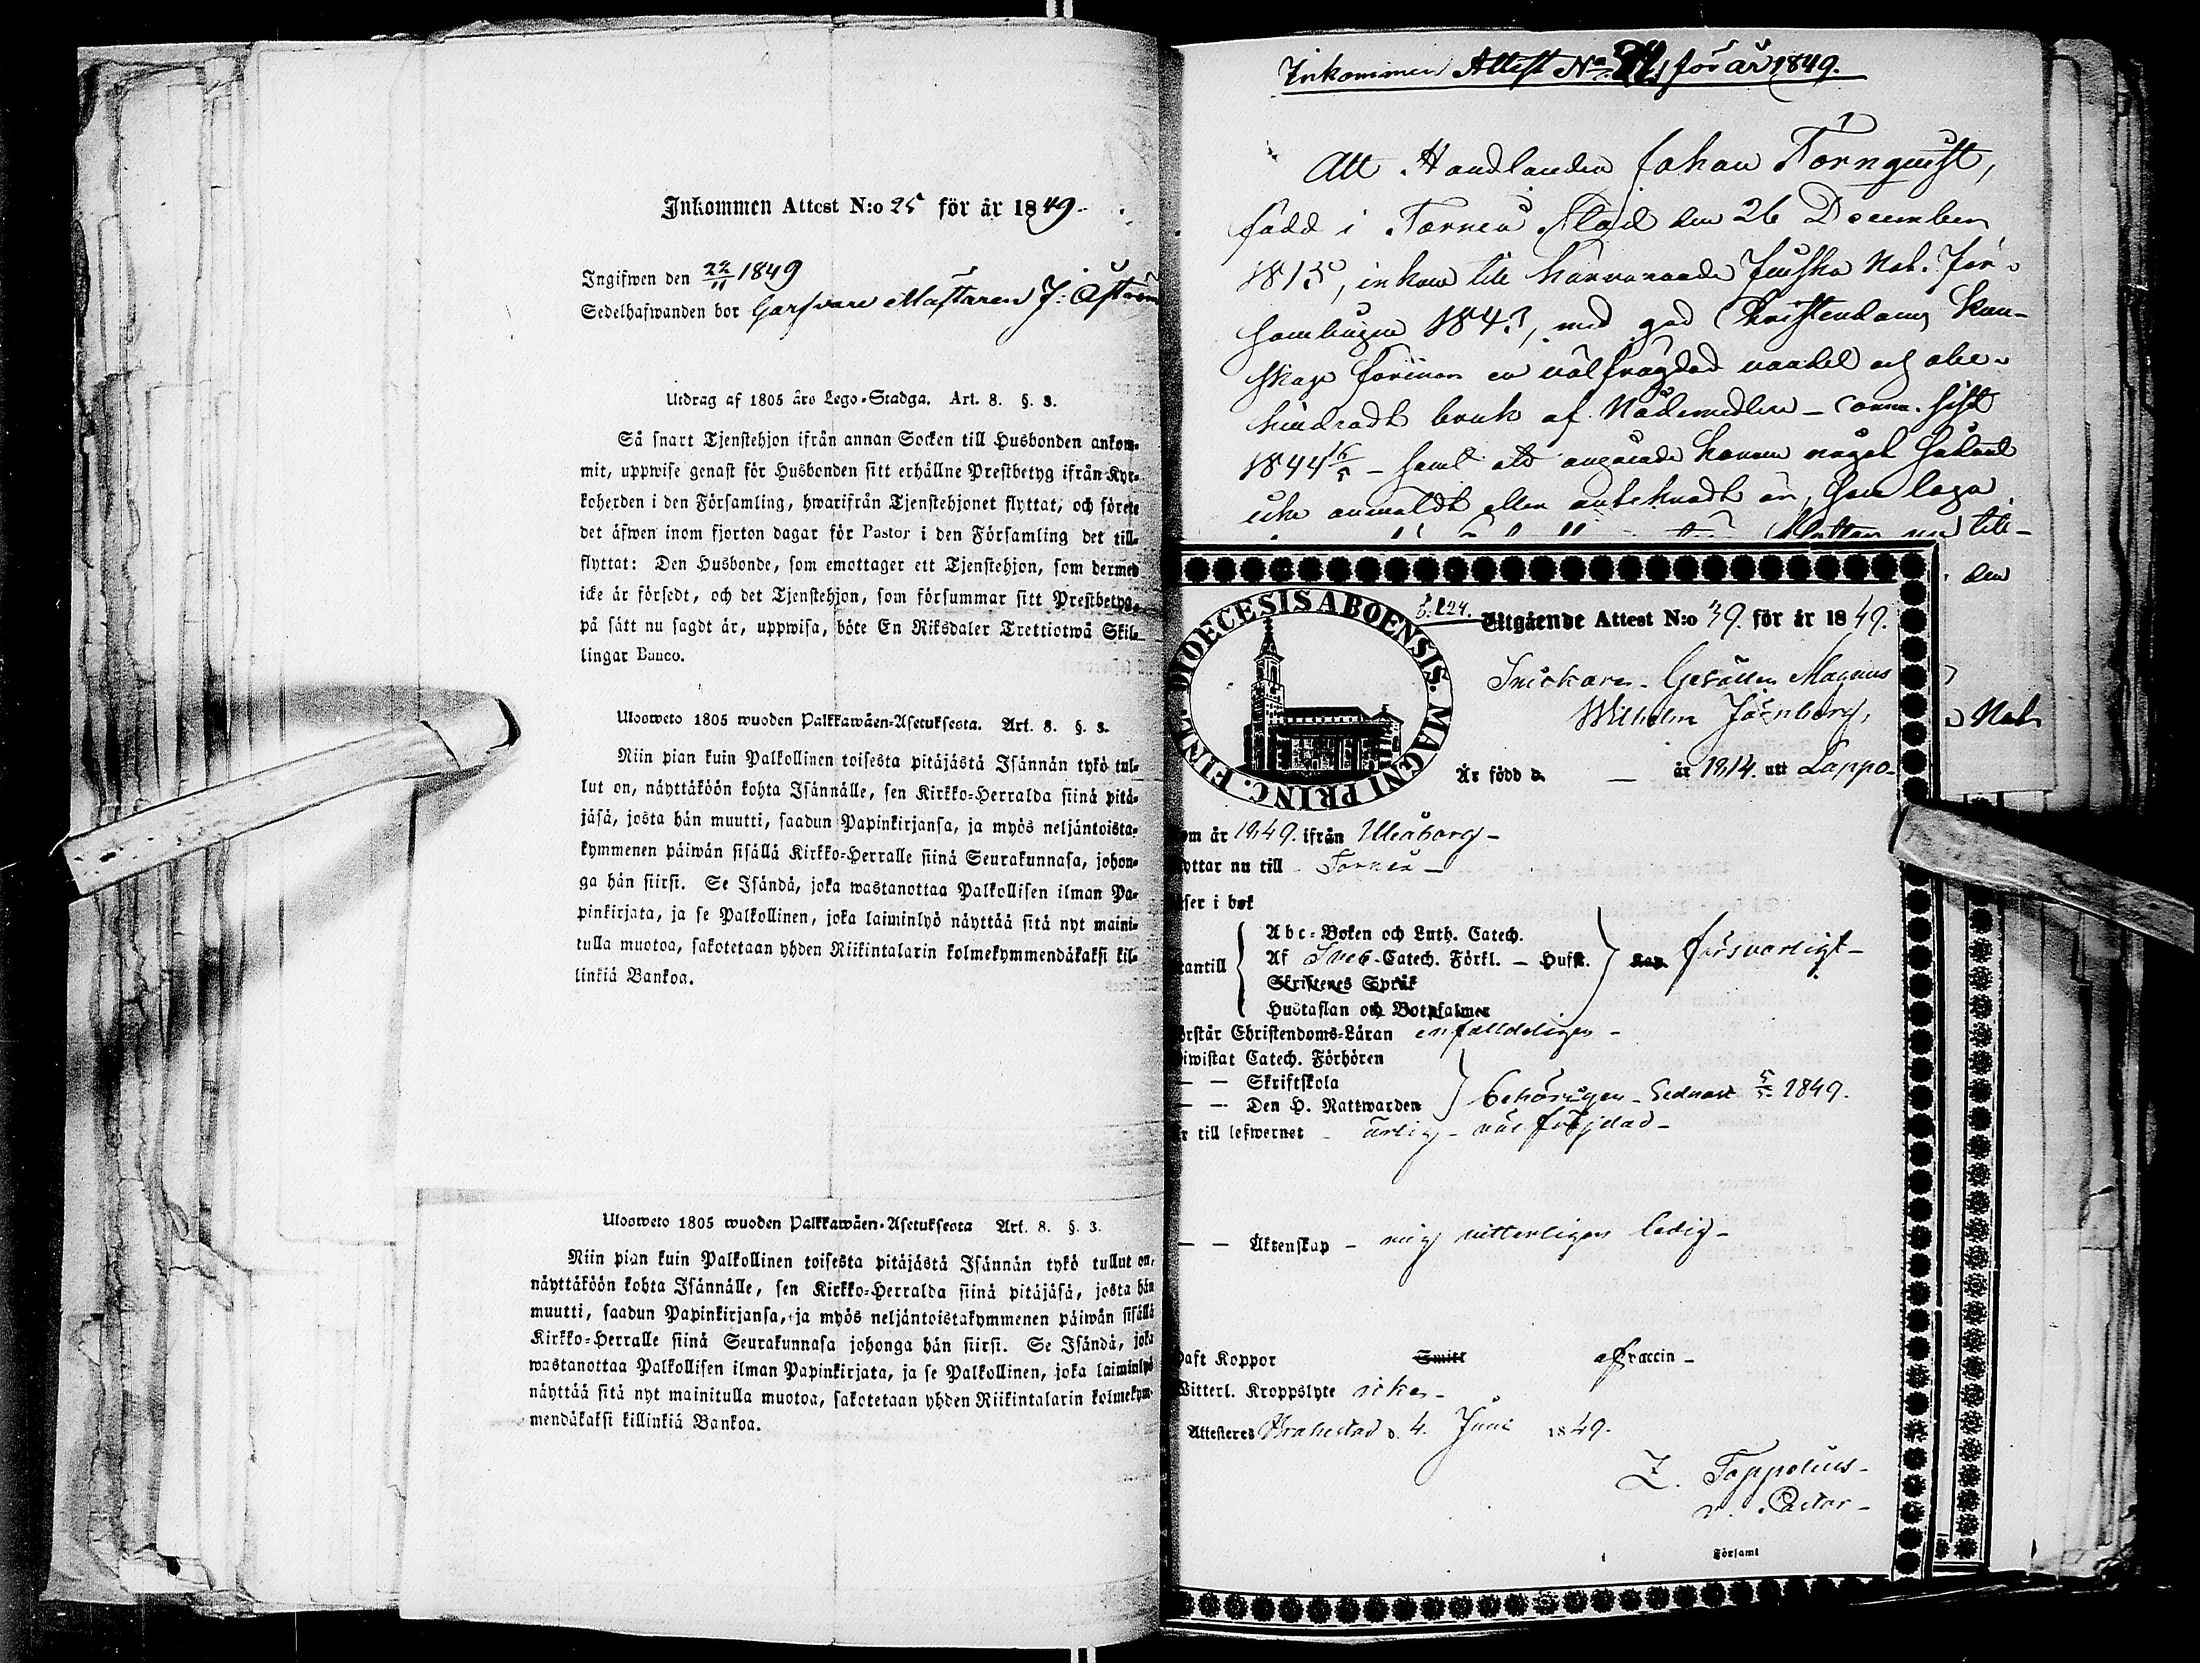 Inkommen Attest N:o 25 för år 1849.
Ingifwen den 22/11 1849
Sedelhafwanden bor Garfvare Mästaren J: Åström
Utdrag af 1805 års Lego-Stadga. Art. 8. §. 3.
Så snart Tjenstehjon ifrån annan Socken till Husbonden ankom-
mit, uppwise genast för Husbonden sitt erhållne Prestbetyg ifrån Kyr-
koherden i den Församling, hwarifrån Tjenstehjonet flyttat, och förete
det äfwen inom fjorton dagar för Pastor i den Församling det till-
flyttat: Den Husbonde, som emottager ett Tjenstehjon, som dermed
icke är försedt, och det Tjenstehjon, som försummar sitt Prestbetyg,
på sätt nu sagdt är, uppwisa, böte En Riksdaler Trettiotwå Skil-
lingar Banco.
Ulosweto 1805 wuoden Palkkawäen-Asetuksesta. Art. 8. §. 3.
Niin pian kuin Palkollinen toisesta pitäjästä Isännän tykö tul-
lut on, näyttäköön kohta Isännälle, sen Kirkko-Herralda siinä pitä-
jäsä, josta hän muutti, saadun Papinkirjansa, ja myös neljäntoista-
kymmenen päiwän sisällä Kirkko-Herralle siinä Seurakunnasa, johon-
ga hän siirsi. Se Isändä, joka wastanottaa Palkollisen ilman Pa-
pinkirjata, ja se Palkollinen, joka laiminlyö näyttää sitä nyt maini-
tulla muotoa, sakotetaan yhden Riikintalarin kolmekymmendäkaksi kil-
linkiä Bankoa.
Ulosweto 1805 wuoden Palkkawäen-Asetuksesta Art. 8. §. 3.
Niin pian kuin Palkollinen toisesta pitäjästä Isännän tykö tullut on,
näyttäköön kohta Isännälle, sen Kirkko-Herralda siinä pitäjäsä, josta hän
muutti, saadun Papinkirjansa, ja myös neljäntoistakymmenen päiwän sisällä
Kirkko-Herralle siinä Seurakunnasa johonga hän siirsi. Se Isändä, joka
wastanottaa Palkollisen ilman Papinkirjata, ja se Palkollinen, joka laiminlyö
näyttää sitä nyt mainitulla muotoa, sakotetaan yhden Riikintalarin kolmekym-
mendäkaksi killinkiä Bankoa.
Inkommen Attest No för år 1849.
Att Handlanden Johan Törnquist,
född i Torneå Stad den 26 December
1815, inkom till härvarande Finska Nat. För-
samlingen 1843, med god Christendoms kun-
skap förenar en välfrägdad vandel och obe-
hindradt bruk af Nådemedlen - comm. sist
1844 16/5 - samt att angående honom något hinder
icke anmäldt eller antecknadt är, som laga
till-
den
Nat.
DIOECESIS ABOENSIS. MAGNI PRINC. FINL.
b. 124. Utgående Attest N:o 39. för år 1849.
Snickare-Gesällen Magnus
Wilhelm Jernberg,
Är född d. — år 1814. uti Lappo-
om år 1849. ifrån Uleåborg-
yttar nu till Torneå-
ser i bok
antill
Abc-Boken och Luth. Catech.
Af Sveb-Catech. Förkl. — Husst.
Skriftenes Språk
Hustaflan och Botpsalmer
Kap. försvarligt-
örstår Christendoms-Läran enfalldeligen-
iwistat Catech. Förhören
— — Skriftskola
— — Den H. Nattwarden
behörigen - Sednast 5/5 1849.
r till lefwernet - ärlig - väl fräjdad-
— — Äktenskap - mig vitterligen ledig-
aft Koppor Smitt af Vaccin-
Witterl. Kroppslyte icke-
Attesteres Brahestad d. 4. Juni 1849.
Z. Toppelius-
v. Pastor-
Församl